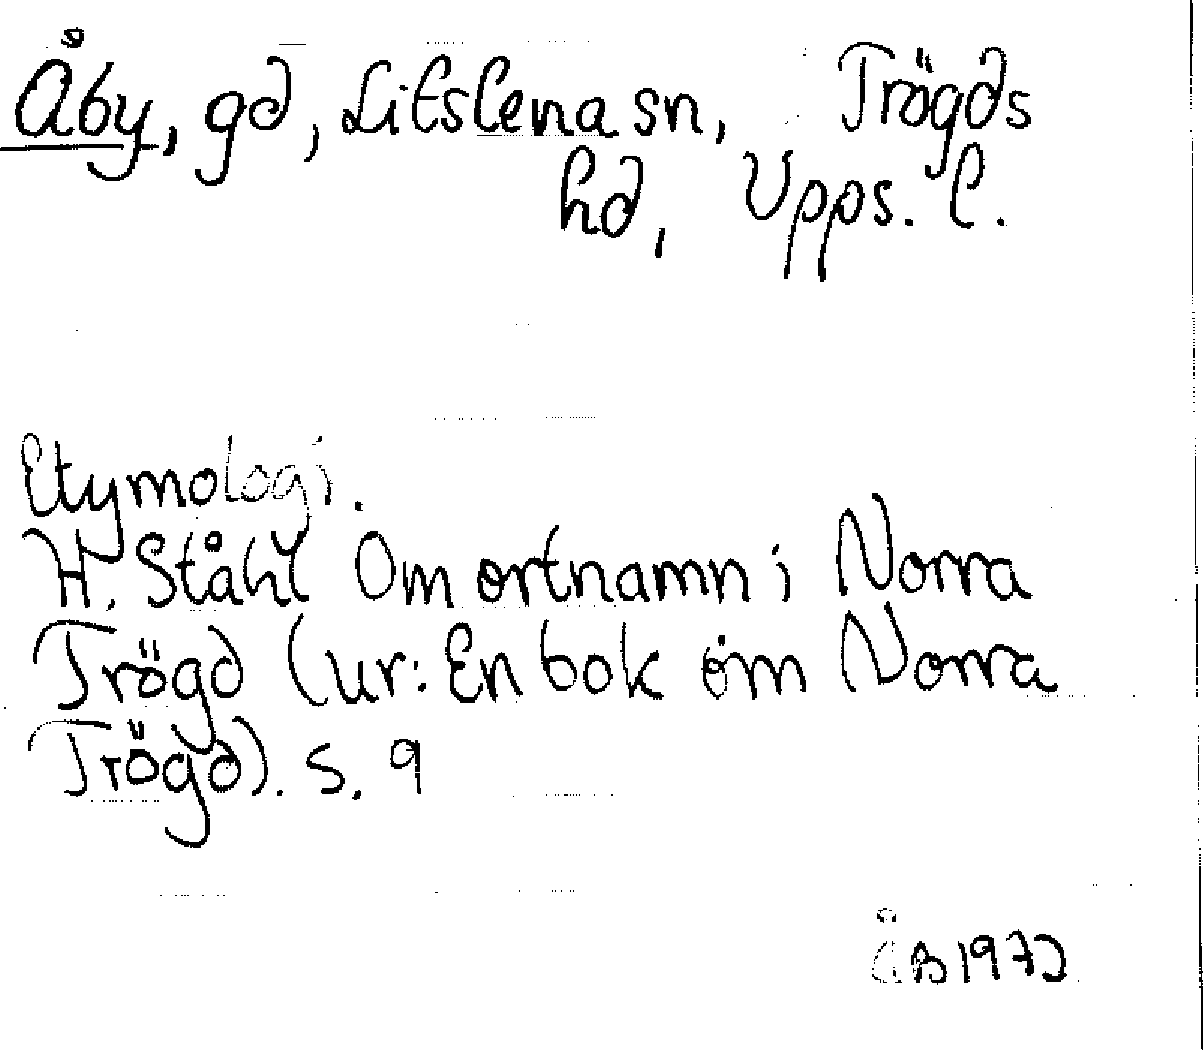 Åby, gd, Litslena sn, Trögds
hd, Upps. l.
Etymologi.
H. Ståhl Om ortnamn i Norra
Trögd (ur: En bok om Norra
Trögd). s. 9